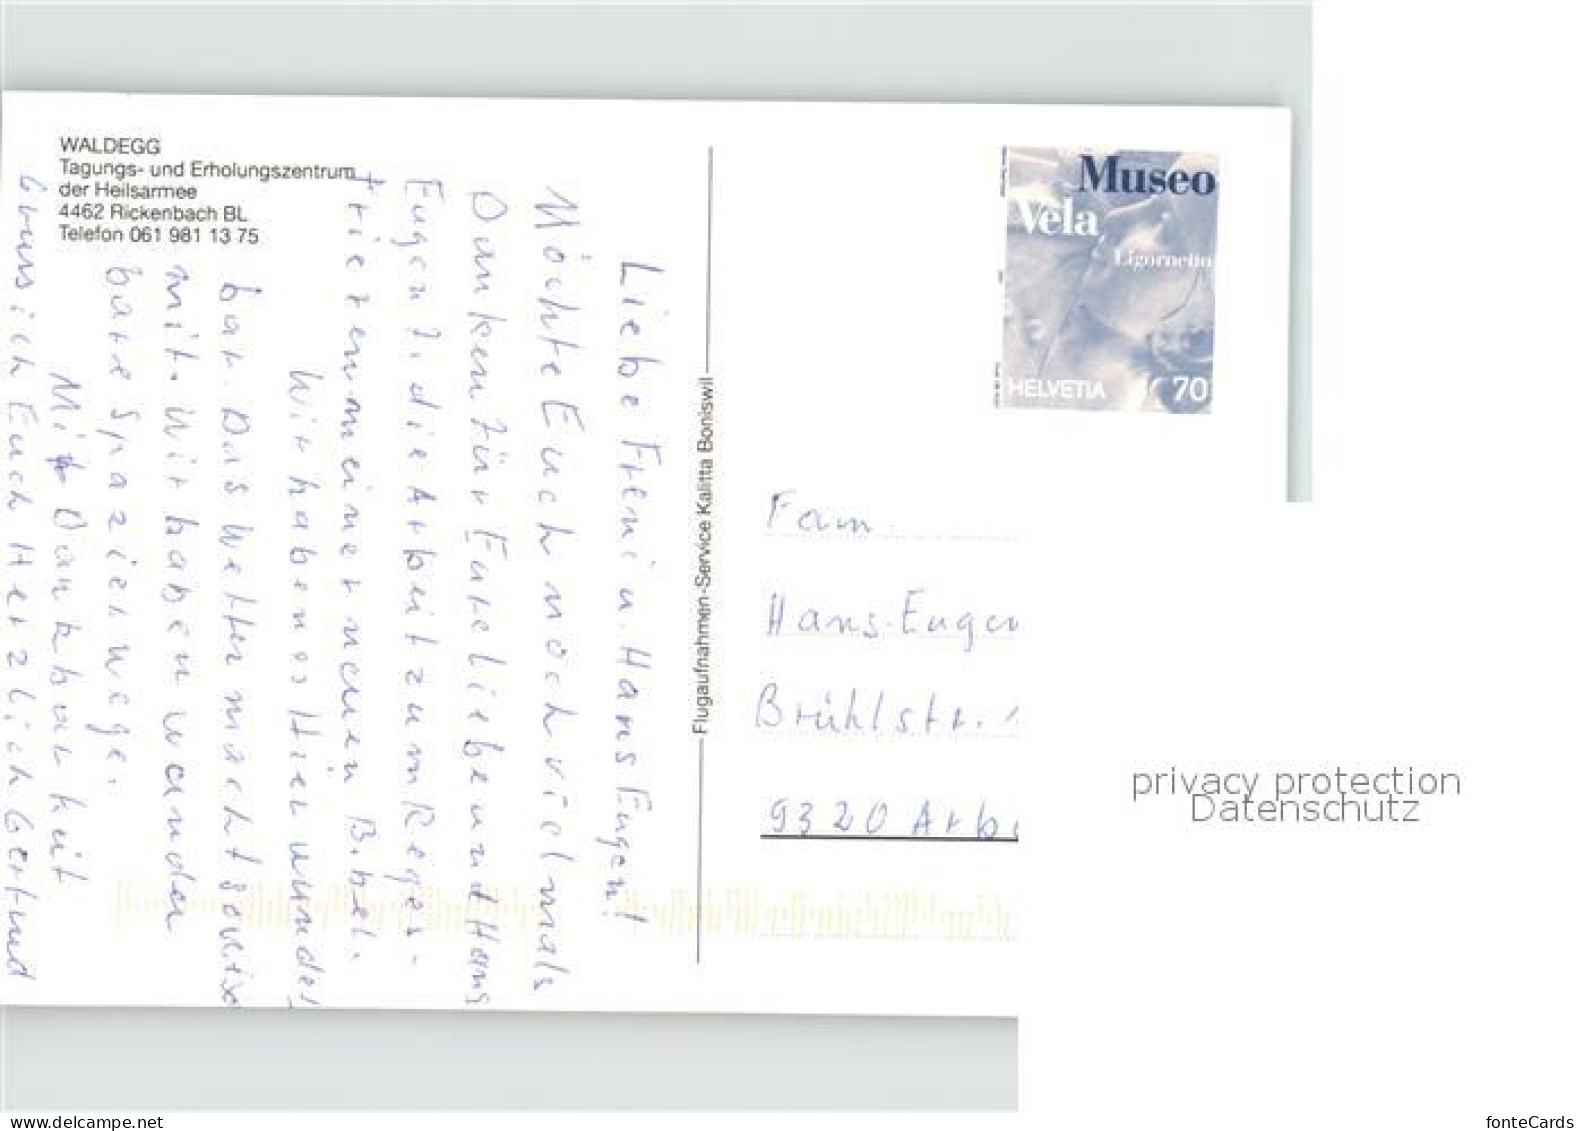 WALDEGG
Tagungs- und Erholungszentrum
der Heilsarmee
4462 Rickenbach BL
Telefon 061 981 13 75
Liebe Freni u. Hans Eugen!
Möchte Euch noch vielmals
Danken für Eure Liebe und Hans
Eugen f. die Arbeit zum Reges-
trieren meiner neuen Bibel.
Wir haben es hier wunder
bar. Das Wetter macht
mit. Wir haben wunder
bare Spazierwege.
Mit Dankbarkeit
Grüss ich Euch Herzlich Gertrud
Flugaufnahmen-Service Kalitta Boniswil
Museo
Vela
Ligornetto
HELVETIA 70
Fam.
Hans-Eugen
Brühlstr.
9320 Arbo
privacy protection
Datenschutz
www.delcampe.net
fonteCards